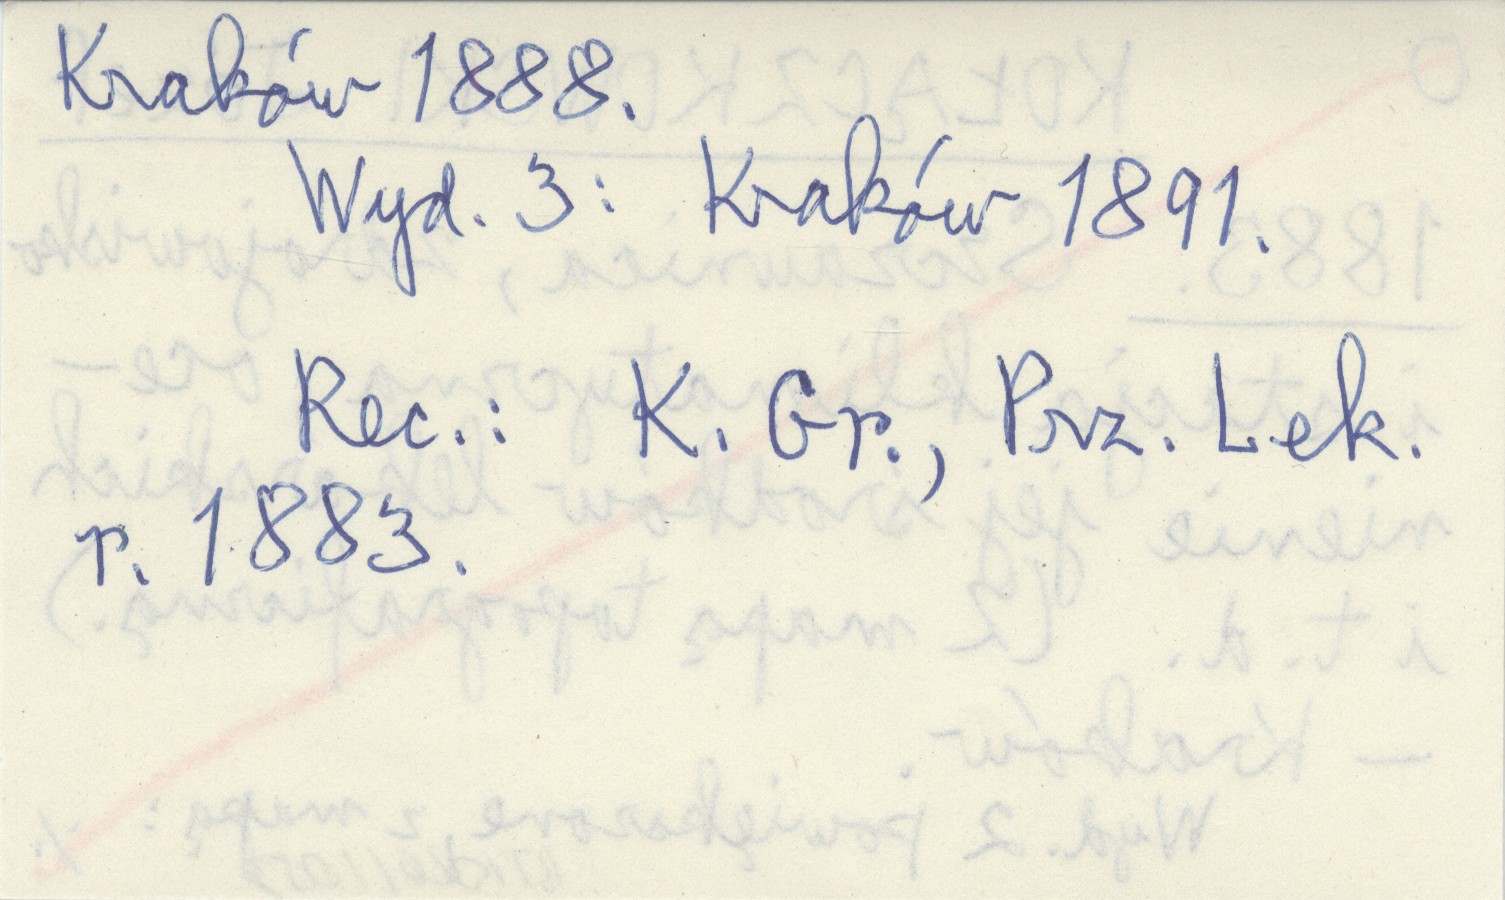 Kraków 1888.
Wyd. 3: Kraków 1891.
Rec.: K. Gr., Prz. Lek.
r. 1883.